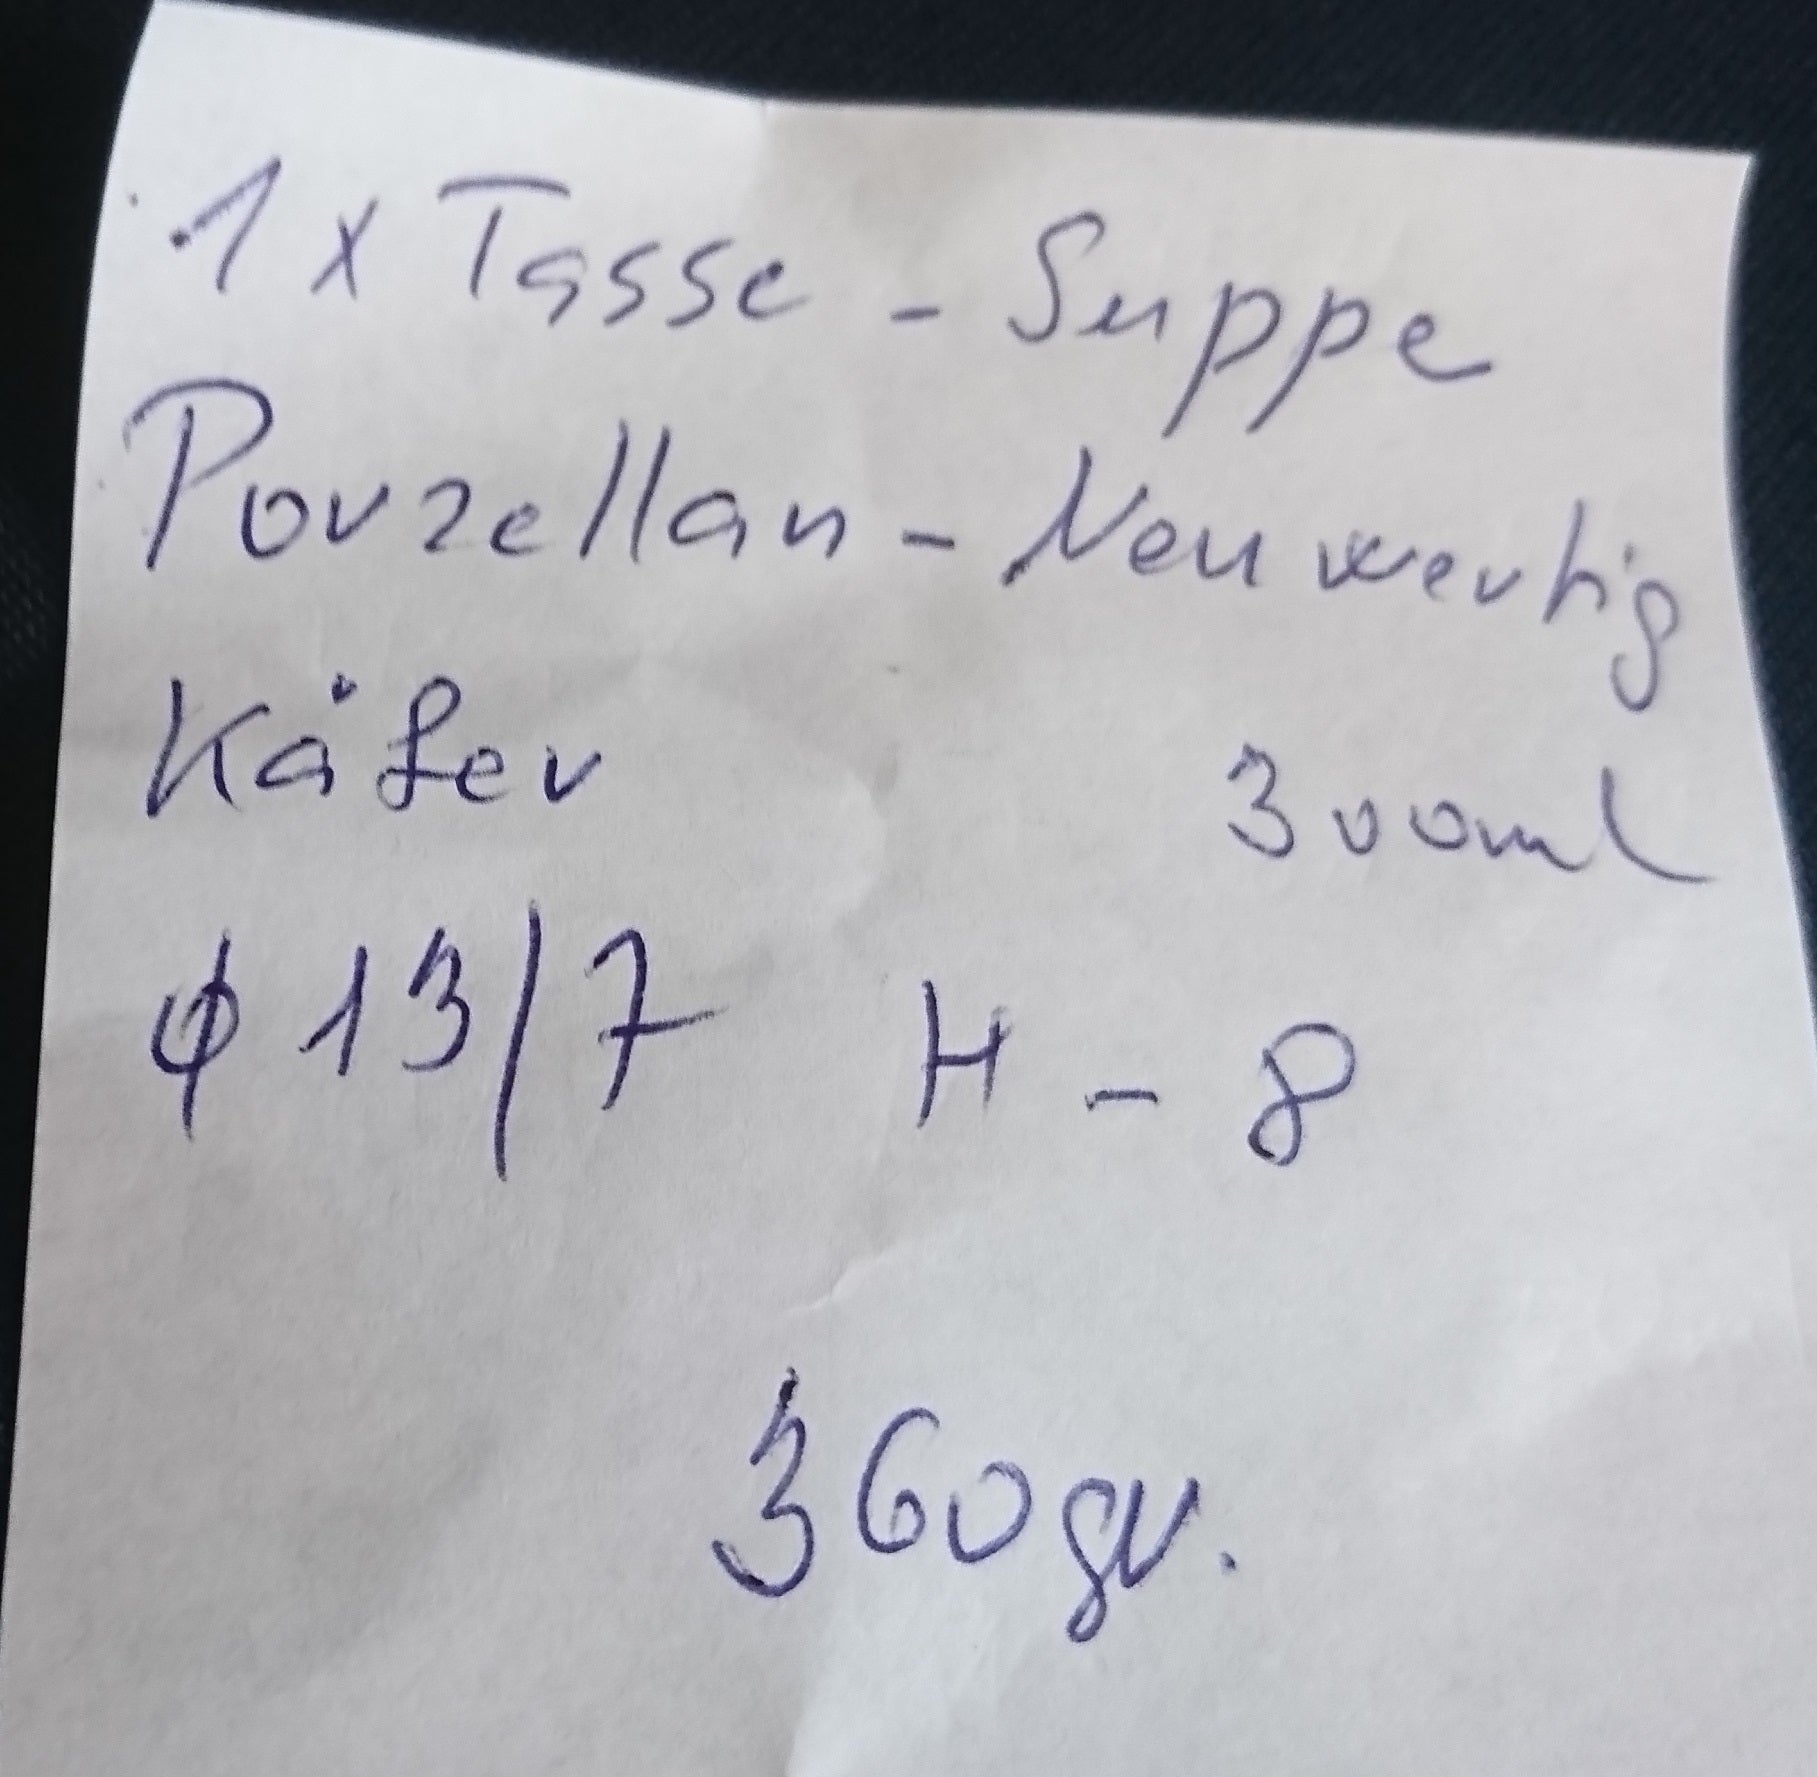 1 x Tasse - Suppe
Porzellan - Neuwertig
Käfer 300ml
ϕ 13/7 H - 8
360gr.